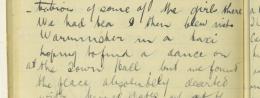 of some of the girls there
We had tea & then flew into
Warminster in a taxi
hoping to find a dance on
at the Town Hall but we found
the place absolutely deserted